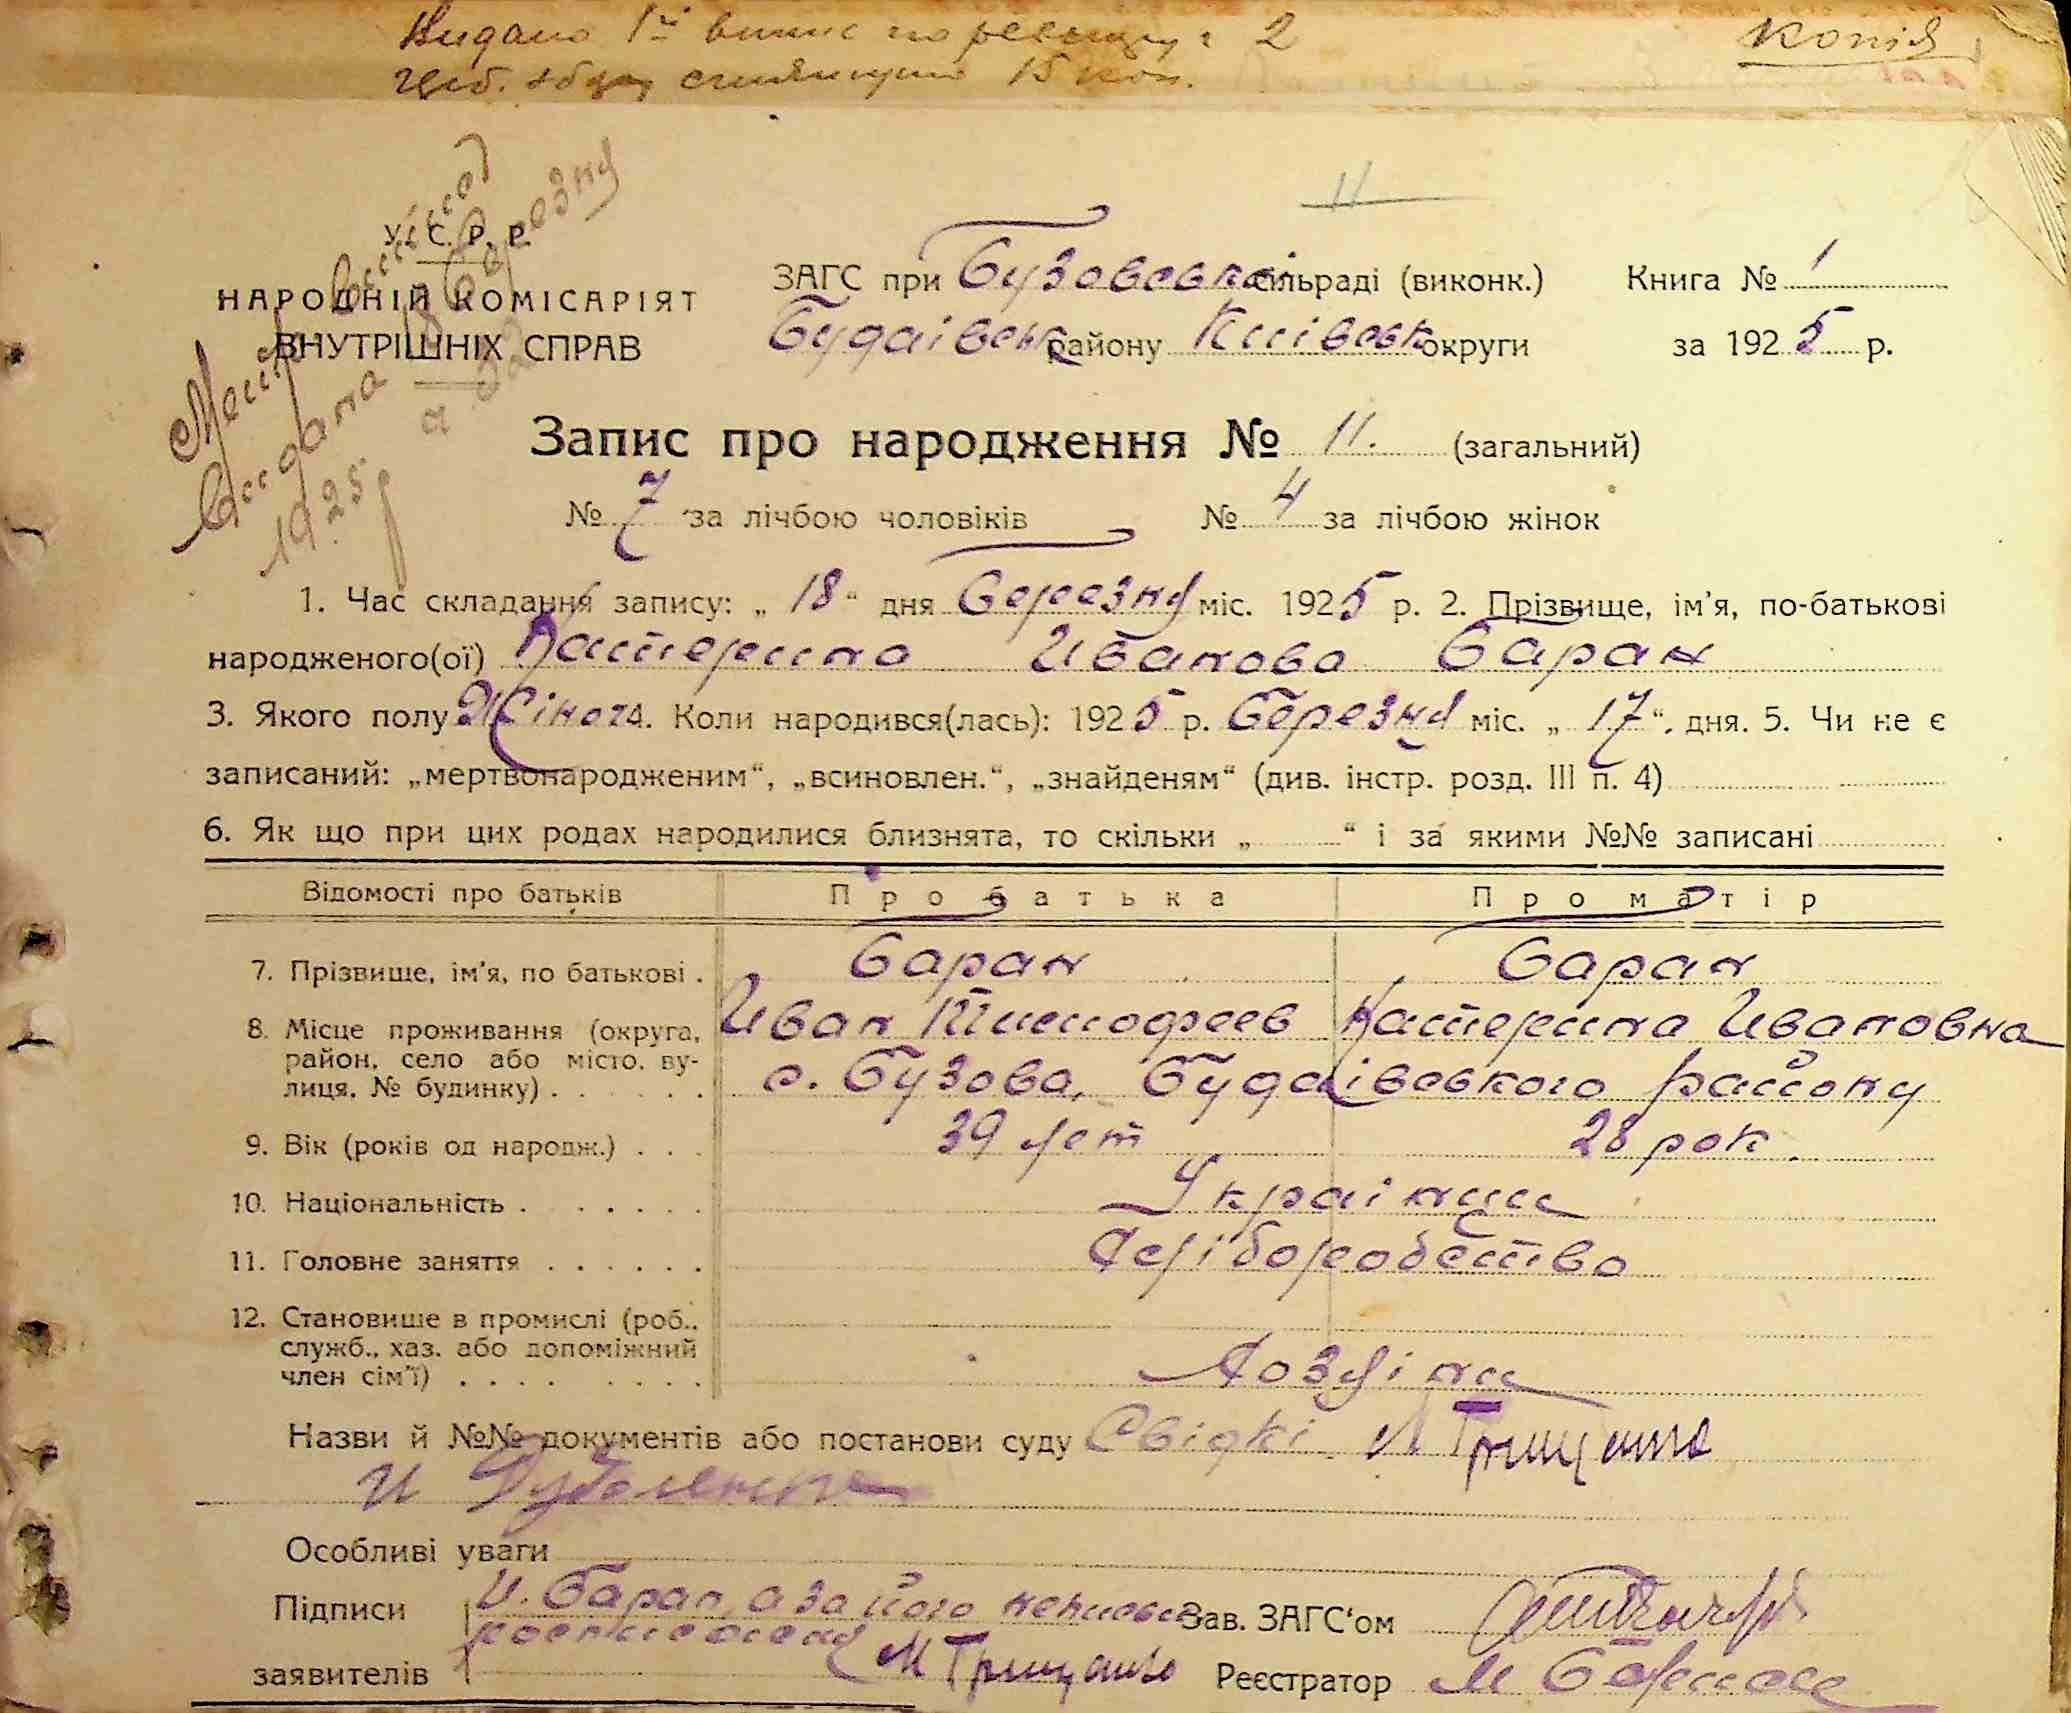 Видано 1й випис по реєстру 2
герб. збору стягнуто 15 коп.
Копія
11
У. С. Р. Р.
НАРОДНІЙ КОМІСАРІЯТ
ВНУТРІШНІХ СПРАВ
видана 18 березня
1925 р
ЗАГС при Бузовській сільраді (виконк.)
Будаівськ району Киівськ округи
Книга № 1
за 1925 р.
Запис про народження № 11. (загальний)
№ 7 за лічбою чоловіків № 4 за лічбою жінок
1. Час складання запису: „ 18 “ дня Березня міс. 1925 р. 2. Прізвище, ім’я, по-батькові
народженого(ої) Катерина Иванова Баран
3. Якого полу Жіноч 4. Коли народився(лась): 1925 р. Березня міс. „ 17 “. дня. 5. Чи не є
записаний: „мертвонародженим“, „всиновлен.“, „знайденям“ (див. інстр. розд. III п. 4)
6. Як що при цих родах народилися близнята, то скільки „ “ і за якими №№ записані
Відомості про батьків Про батька Про матір
7. Прізвище, ім’я, по батькові . Баран Баран
Иван Тимофеев Катерина Ивановна
8. Місце проживання (округа, район, село або місто, вулиця, № будинку) . . . . . . с. Бузова, Будаівського району
9. Вік (років од народж.) . . . 39 лет 28 рок.
10. Національність . . . . . . . Украінци
11. Головне заняття . . . . . . Хліборобство
12. Становище в промислі (роб., служб., хаз. або допоміжний член сім’ї) . . . . . . . . Хозяіни
Назви й №№ документів або постанови суду Свідкі М Грищенко
и
Особливі уваги
Підписи И. Баран, а за його неписьм Зав. ЗАГС‘ом
росписався
заявителів М Грищенко Реєстратор М